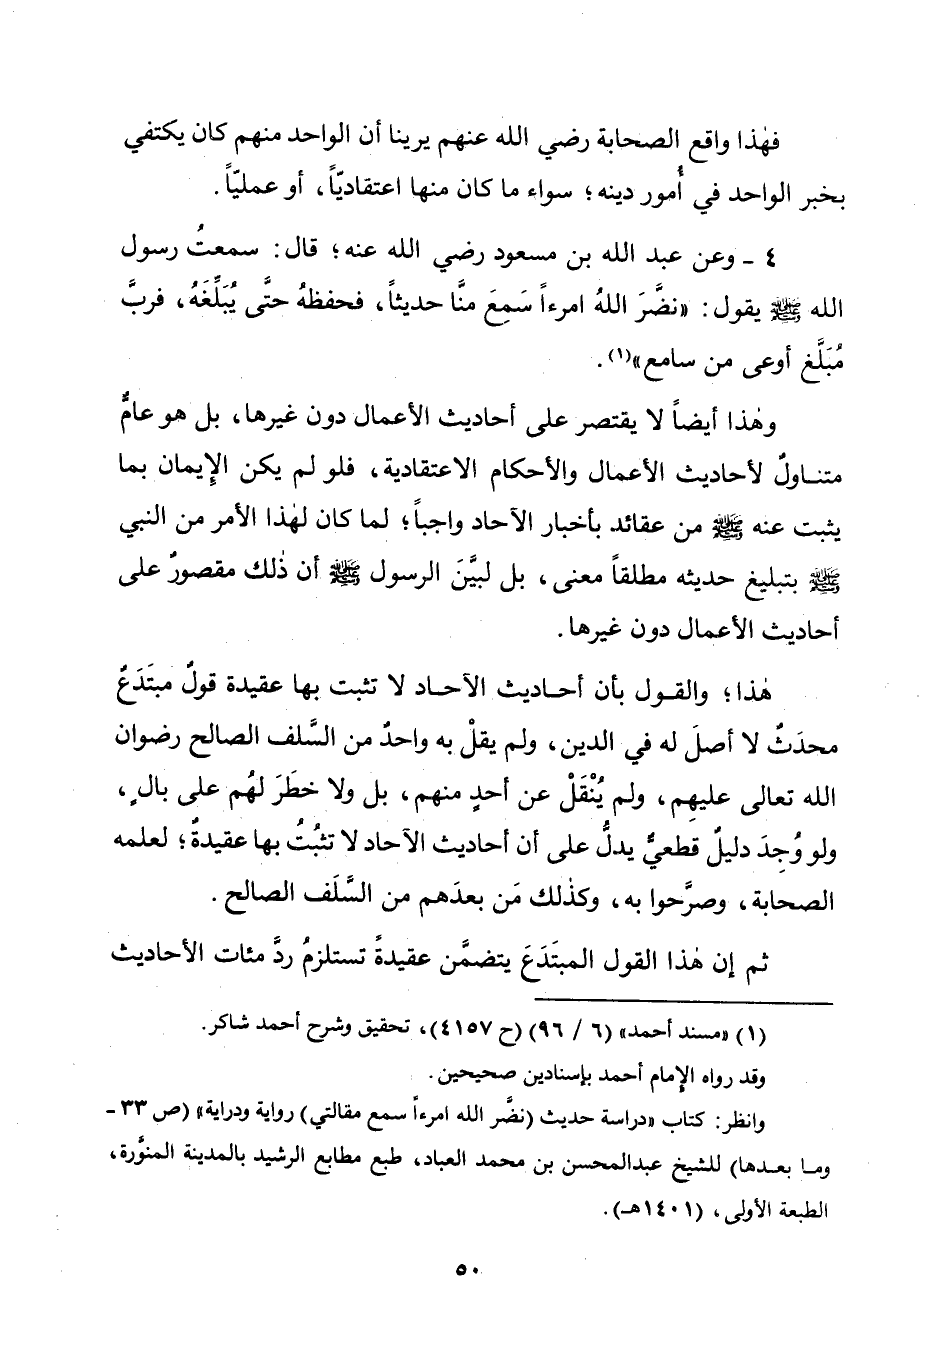 فهٰذا واقع الصحابة رضي الله عنهم يرينا أن الواحد منهم كان يكتفي
بخبر الواحد في أُمور دينه؛ سواء ما كان منها اعتقاديّاً، أو عمليّاً.
٤ ـ وعن عبد الله بن مسعود رضي الله عنه؛ قال: سمعتُ رسول
الله ﷺ يقول: «نضَّرَ اللهُ امرءاً سَمِعَ منَّا حديثاً، فحفظهُ حتَّى يُبَلِّغَهُ، فربَّ
مُبَلَّغ أوعى من سامع»(١).
وهٰذا أيضاً لا يقتصر على أحاديث الأعمال دون غيرها، بل هو عامٌّ
متنـاولٌ لأحاديث الأعمال والأحكام الاعتقادية، فلو لم يكن الإِيمان بما
يثبت عنه ﷺ من عقائد بأخبار الآحاد واجباً؛ لما كان لهٰذا الأمر من النبي
ﷺ بتبليغ حديثه مطلقاً معنى، بل لبيَّنَ الرسول ﷺ أن ذٰلك مقصورٌ على
أحاديث الأعمال دون غيرها.
هٰذا؛ والقـول بأن أحـاديث الآحـاد لا تثبت بها عقيدة قولٌ مبتَدَعٌ
محدَثٌ لا أصلَ له في الدين، ولم يقلْ به واحدٌ من السَّلف الصالح رضوان
الله تعالى عليهِم، ولم يُنْقَلْ عن أحدٍ منهم، بل ولا خطَرَ لهُم على بالٍ،
ولو وُجِدَ دليلٌ قطعيٌّ يدلُّ على أن أحاديث الآحاد لا تثبُتُ بها عقيدةٌ؛ لعلمه
الصحابة، وصرَّحوا به، وكذٰلك مَن بعدَهم من السَّلَف الصالح.
ثم إن هٰذا القول المبتَدَعَ يتضمَّن عقيدةً تستلزمُ ردَّ مئات الأحاديث
(١) «مسند أحمد» (٦ / ٩٦) (ح ٤١٥٧)، تحقيق وشرح أحمد شاكر.
وقد رواه الإِمام أحمد بإسنادين صحيحين.
وانظر: كتاب «دراسة حديث (نضَّر الله امرءاً سمع مقالتي) رواية ودراية» (ص ٣٣ ـ
ومـا بعـدها) للشيخ عبدالمحسن بن محمد العباد، طبع مطابع الرشيد بالمدينة المنوَّرة،
الطبعة الأولى، (١٤٠١هـ).
٥٠